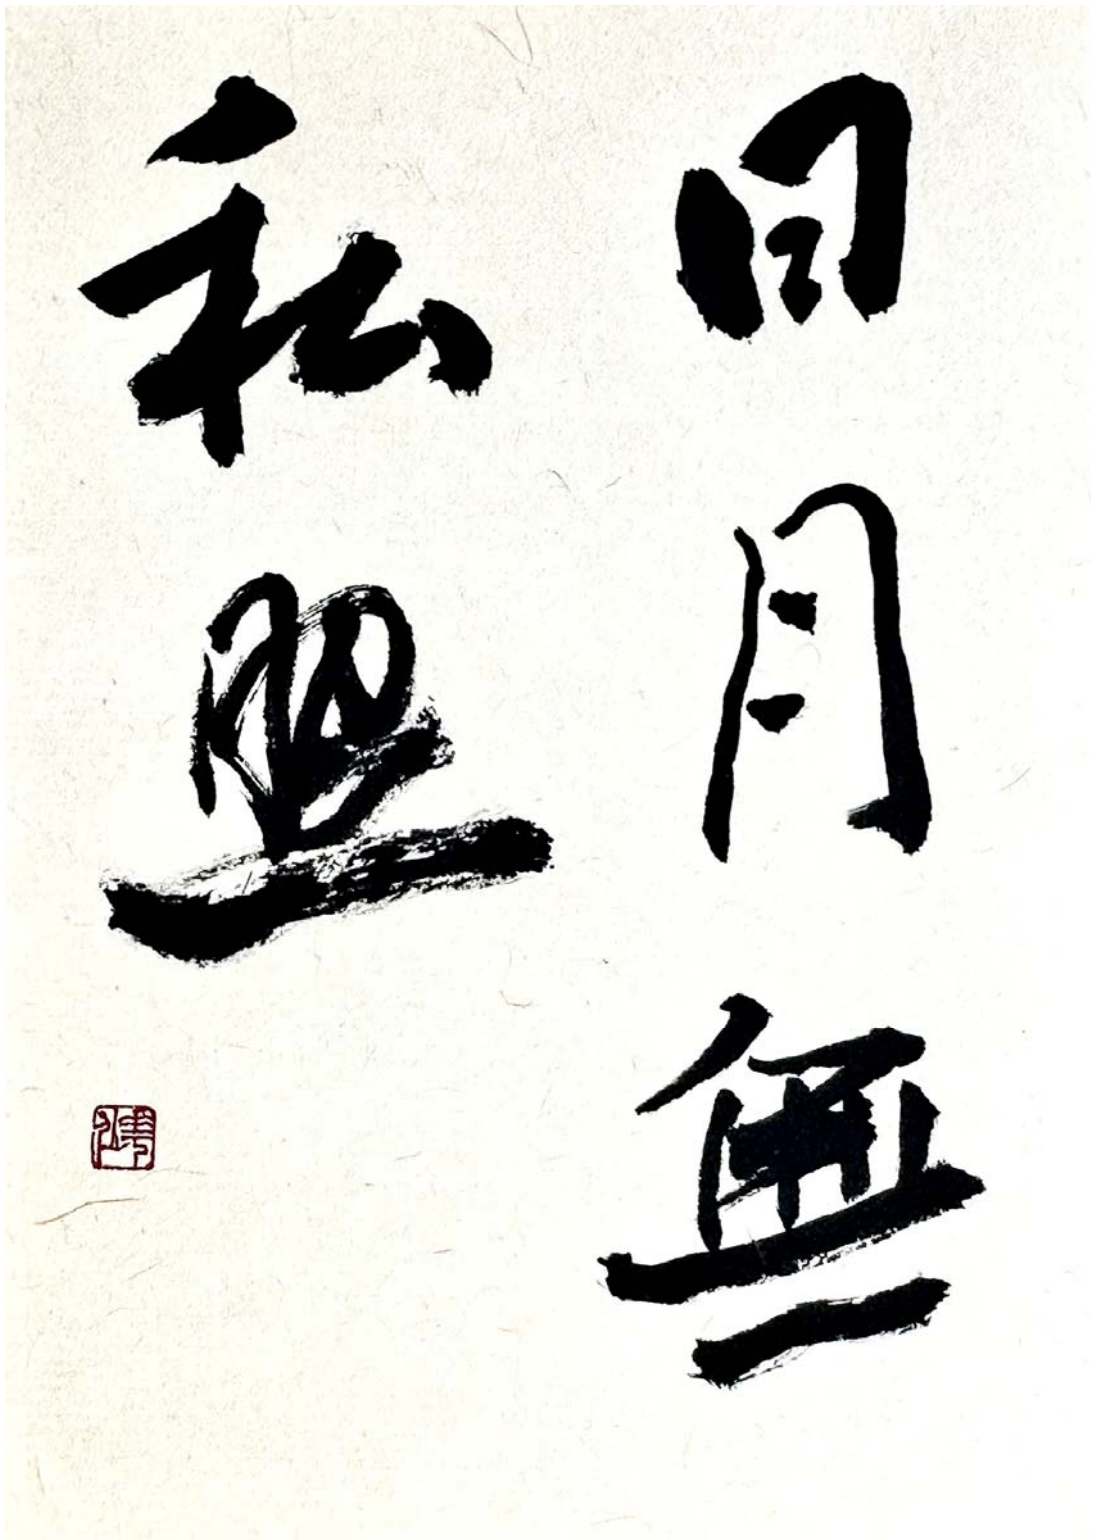 日月無
私照